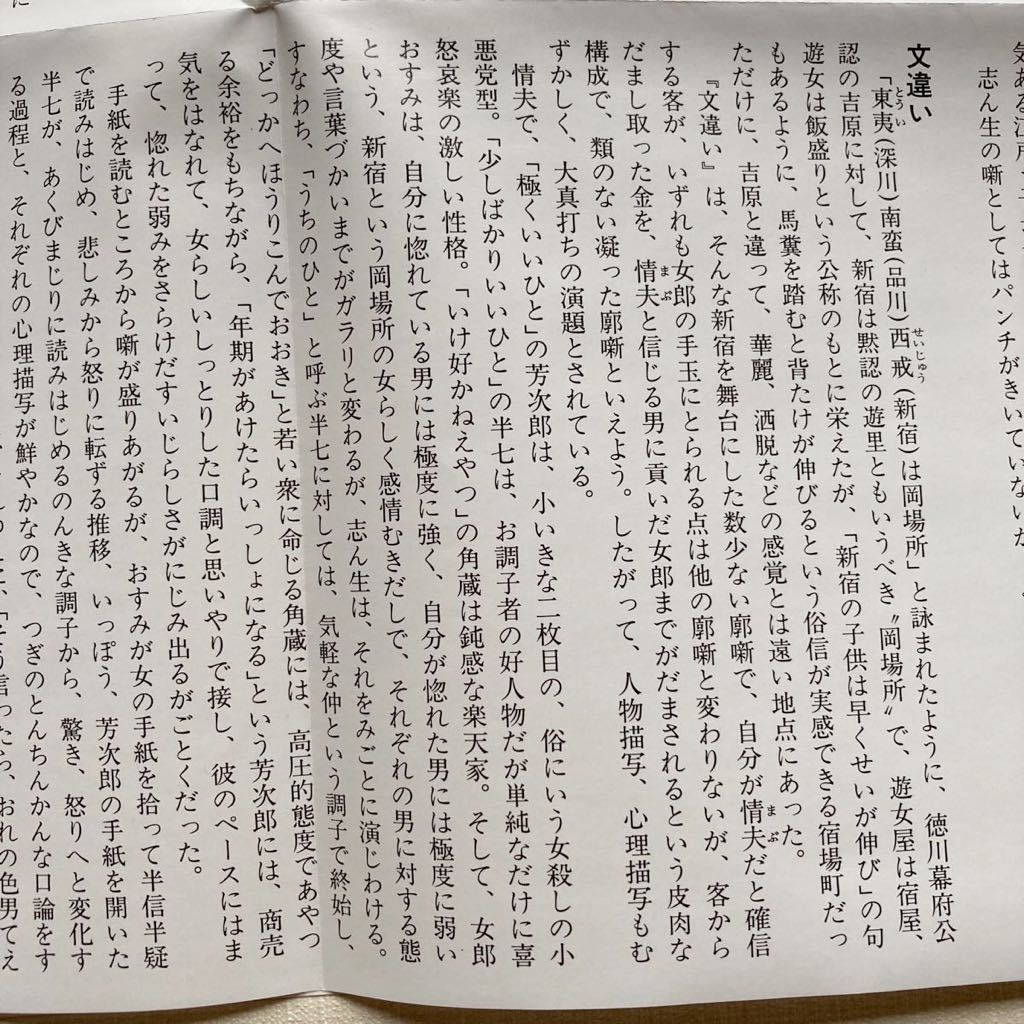 志ん生の噺としてはパンチがきいていないが、
文違い
「東夷(深川)南蛮(品川)西戒(新宿)は岡場所」と詠まれたように、徳川幕府公
認の吉原に対して、新宿は黙認の遊里ともいうべき〝岡場所〟で、遊女屋は宿屋、
遊女は飯盛りという公称のもとに栄えたが、「新宿の子供は早くせいが伸び」の句
もあるように、馬糞を踏むと背たけが伸びるという俗信が実感できる宿場町だっ
ただけに、吉原と違って、華麗、洒脱などの感覚とは遠い地点にあった。
『文違い』は、そんな新宿を舞台にした数少ない廓噺で、自分が情夫だと確信
する客が、いずれも女郎の手玉にとられる点は他の廓噺と変わりないが、客から
だまし取った金を、情夫と信じる男に貢いだ女郎までがだまされるという皮肉な
構成で、類のない凝った廓噺といえよう。したがって、人物描写、心理描写もむ
ずかしく、大真打ちの演題とされている。
情夫で、「極くいいひと」の芳次郎は、小いきな二枚目の、俗にいう女殺しの小
悪党型。「少しばかりいいひと」の半七は、お調子者の好人物だが単純なだけに喜
怒哀楽の激しい性格。「いけ好かねえやつ」の角蔵は鈍感な楽天家。そして、女郎
おすみは、自分に惚れている男には極度に強く、自分が惚れた男には極度に弱い
という、新宿という岡場所の女らしく感情むきだしで、それぞれの男に対する態
度や言葉づかいまでがガラリと変わるが、志ん生は、それをみごとに演じわける。
すなわち、「うちのひと」と呼ぶ半七に対しては、気軽な仲という調子で終始し、
「どっかへほうりこんでおおき」と若い衆に命じる角蔵には、高圧的態度であやつ
る余裕をもちながら、「年期があけたらいっしょになる」という芳次郎には、商売
気をはなれて、女らしいしっとりした口調と思いやりで接し、彼のペースにはま
って、惚れた弱みをさらけだすいじらしさがにじみ出るがごとくだった。
手紙を読むところから噺が盛りあがるが、おすみが女の手紙を拾って半信半疑
で読みはじめ、悲しみから怒りに転ずる推移、いっぽう、芳次郎の手紙を開いた
半七が、あくびまじりに読みはじめるのんきな調子から、驚き、怒りへと変化す
る過程と、それぞれの心理描写が鮮やかなので、つぎのとんちんかんな口論をす
言ったら、おれの色男てえ